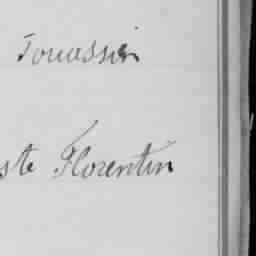 Touassin
ste Florentin